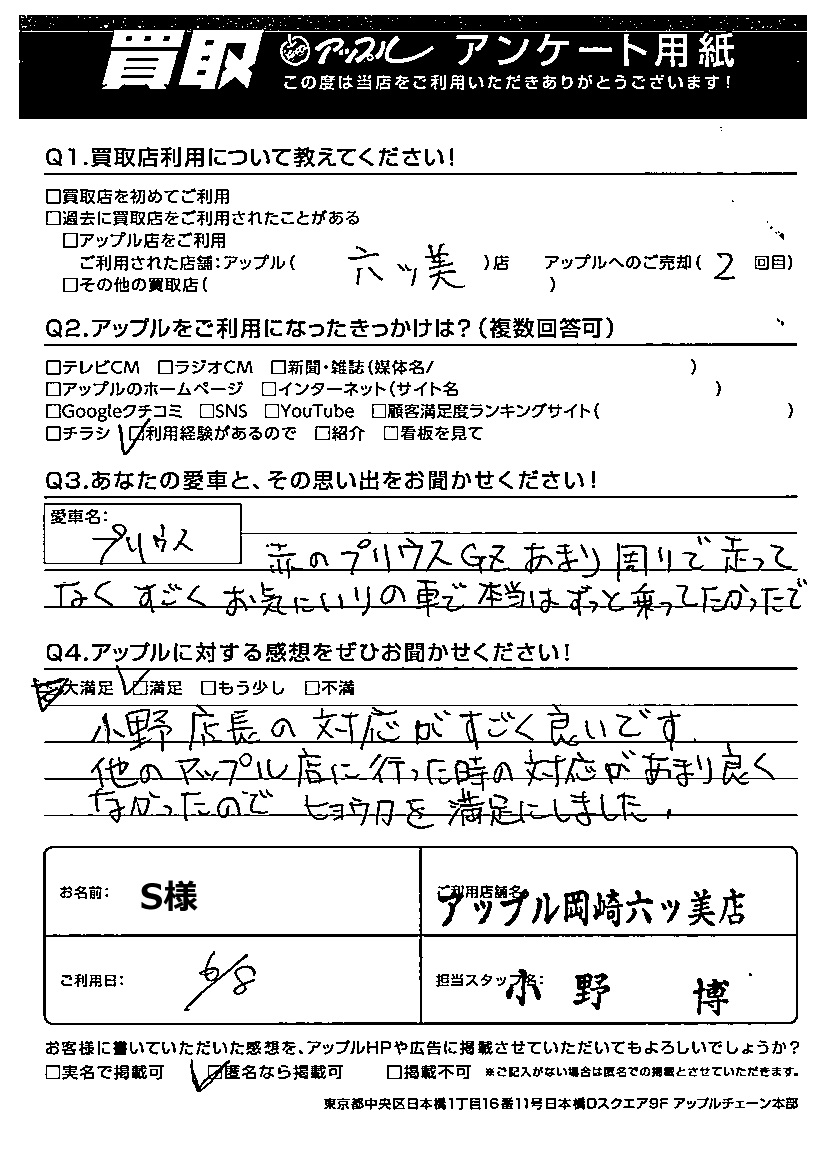 買取 アップル アンケート用紙
この度は当店をご利用いただきありがとうございます!
Q1.買取店利用について教えてください!
□買取店を初めてご利用
□過去に買取店をご利用されたことがある
□アップル店をご利用
ご利用された店舗:アップル( 六ッ美 )店 アップルへのご売却( 2 回目)
□その他の買取店( )
Q2.アップルをご利用になったきっかけは?(複数回答可)
□テレビCM □ラジオCM □新聞・雑誌(媒体名/ )
□アップルのホームページ □インターネット(サイト名 )
□Googleクチコミ □SNS □YouTube □顧客満足度ランキングサイト( )
□チラシ ☑利用経験があるので □紹介 □看板を見て
Q3.あなたの愛車と、その思い出をお聞かせください!
愛車名:
プリウス
赤のプリウスGZ あまり周りで走って
なく すごく お気にいりの車で本当はずっと乗ってたかったで
Q4.アップルに対する感想をぜひお聞かせください!
大満足 ☑満足 □もう少し □不満
小野店長の対応がすごく良いです.
他のアップル店に行った時の対応があまり良く
なかったので ヒョウカを満足にしました.
お名前: S様
ご利用店舗名:
アップル岡崎六ッ美店
ご利用日: 6/8
担当スタッフ名: 小野 博
お客様に書いていただいた感想を、アップルHPや広告に掲載させていただいてもよろしいでしょうか?
□実名で掲載可 ☑匿名なら掲載可 □掲載不可 ※ご記入がない場合は匿名での掲載とさせていただきます。
東京都中央区日本橋1丁目16番11号日本橋Dスクエア9F アップルチェーン本部